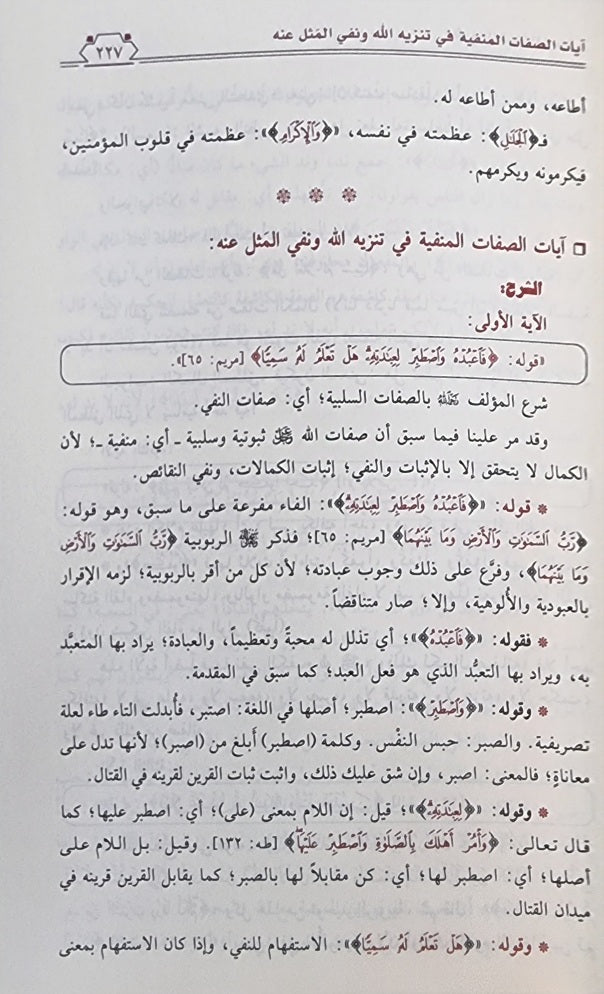 آيات الصفات المنفية في تنزيه الله ونفي المَثل عنه
٢٢٧
أطاعه، وممن أطاعه له.
فـ﴿الْجَلَالِ﴾: عظمته في نفسه، «﴿وَالْإِكْرَامِ﴾»: عظمته في قلوب المؤمنين،
فيكرمونه ويكرمهم.
❋ ❋ ❋
□ آيات الصفات المنفية في تنزيه الله ونفي المَثل عنه:
الشرح:
الآية الأولى:
«قوله: ﴿فَاعْبُدْهُ وَاصْطَبِرْ لِعِبَادَتِهِ هَلْ تَعْلَمُ لَهُ سَمِيًّا﴾ [مريم: ٦٥]».
شرع المؤلف رحمه الله بالصفات السلبية؛ أي: صفات النفي.
وقد مر علينا فيما سبق أن صفات الله عز وجل ثبوتية وسلبية ـ أي: منفية ـ؛ لأن
الكمال لا يتحقق إلا بالإثبات والنفي؛ إثبات الكمالات، ونفي النقائص.
* قوله: «﴿فَاعْبُدْهُ وَاصْطَبِرْ لِعِبَادَتِهِ﴾»: الفاء مفرعة على ما سبق، وهو قوله:
﴿رَبُّ السَّمَوَاتِ وَالْأَرْضِ وَمَا بَيْنَهُمَا﴾ [مريم: ٦٥]؛ فذكر الربوبية ﴿رَبُّ السَّمَوَاتِ وَالْأَرْضِ
وَمَا بَيْنَهُمَا﴾، وفرَّع على ذلك وجوب عبادته؛ لأن كل من أقر بالربوبية؛ لزمه الإقرار
بالعبودية والألوهية، وإلا؛ صار متناقضاً.
* فقوله: «﴿فَاعْبُدْهُ﴾»؛ أي تذلل له محبةً وتعظيماً، والعبادة؛ يراد بها المتعبَّد
به، ويراد بها التعبُّد الذي هو فعل العبد؛ كما سبق في المقدمة.
* وقوله: «﴿وَاصْطَبِرْ﴾»: اصطبر؛ أصلها في اللغة: اصتبر، فأُبدلت التاء طاء لعلة
تصريفية. والصبر: حبس النفْس. وكلمة (اصطبر) أبلغ من (اصبر)؛ لأنها تدل على
معاناةٍ؛ فالمعنى: اصبر، وإن شق عليك ذلك، واثبت ثبات القرين لقرينه في القتال.
* وقوله: «﴿لِعِبَادَتِهِ﴾»؛ قيل: إن اللام بمعنى (على)؛ أي: اصطبر عليها؛ كما
قال تعالى: ﴿وَأْمُرْ أَهْلَكَ بِالصَّلَاةِ وَاصْطَبِرْ عَلَيْهَا﴾ [طه: ١٣٢]. وقيل: بل اللام على
أصلها؛ أي: اصطبر لها؛ أي: كن مقابلاً لها بالصبر؛ كما يقابل القرين قرينه في
ميدان القتال.
* وقوله: «﴿هَلْ تَعْلَمُ لَهُ سَمِيًّا﴾»: الاستفهام للنفي، وإذا كان الاستفهام بمعنى